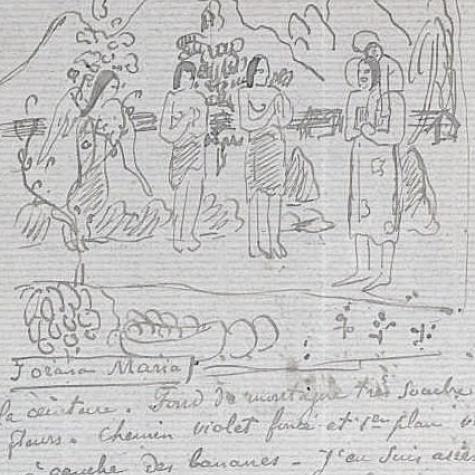 Iorana Maria
la ceinture. Fond de montagne très sombre
fleurs. Chemin violet foncé et 1er plan
à gauche des bananes - J'en suis assez